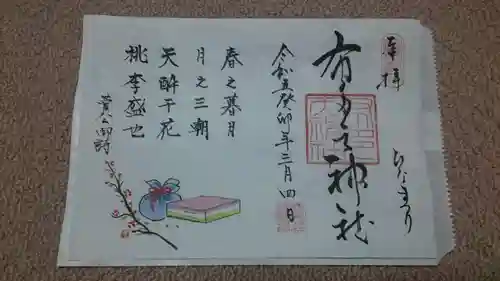 奉拝
ひなまつり
有玉神社
令和五癸卯年三月四日
春之暮月
月之三朝
天酔于花
桃李盛也
菅公御詩